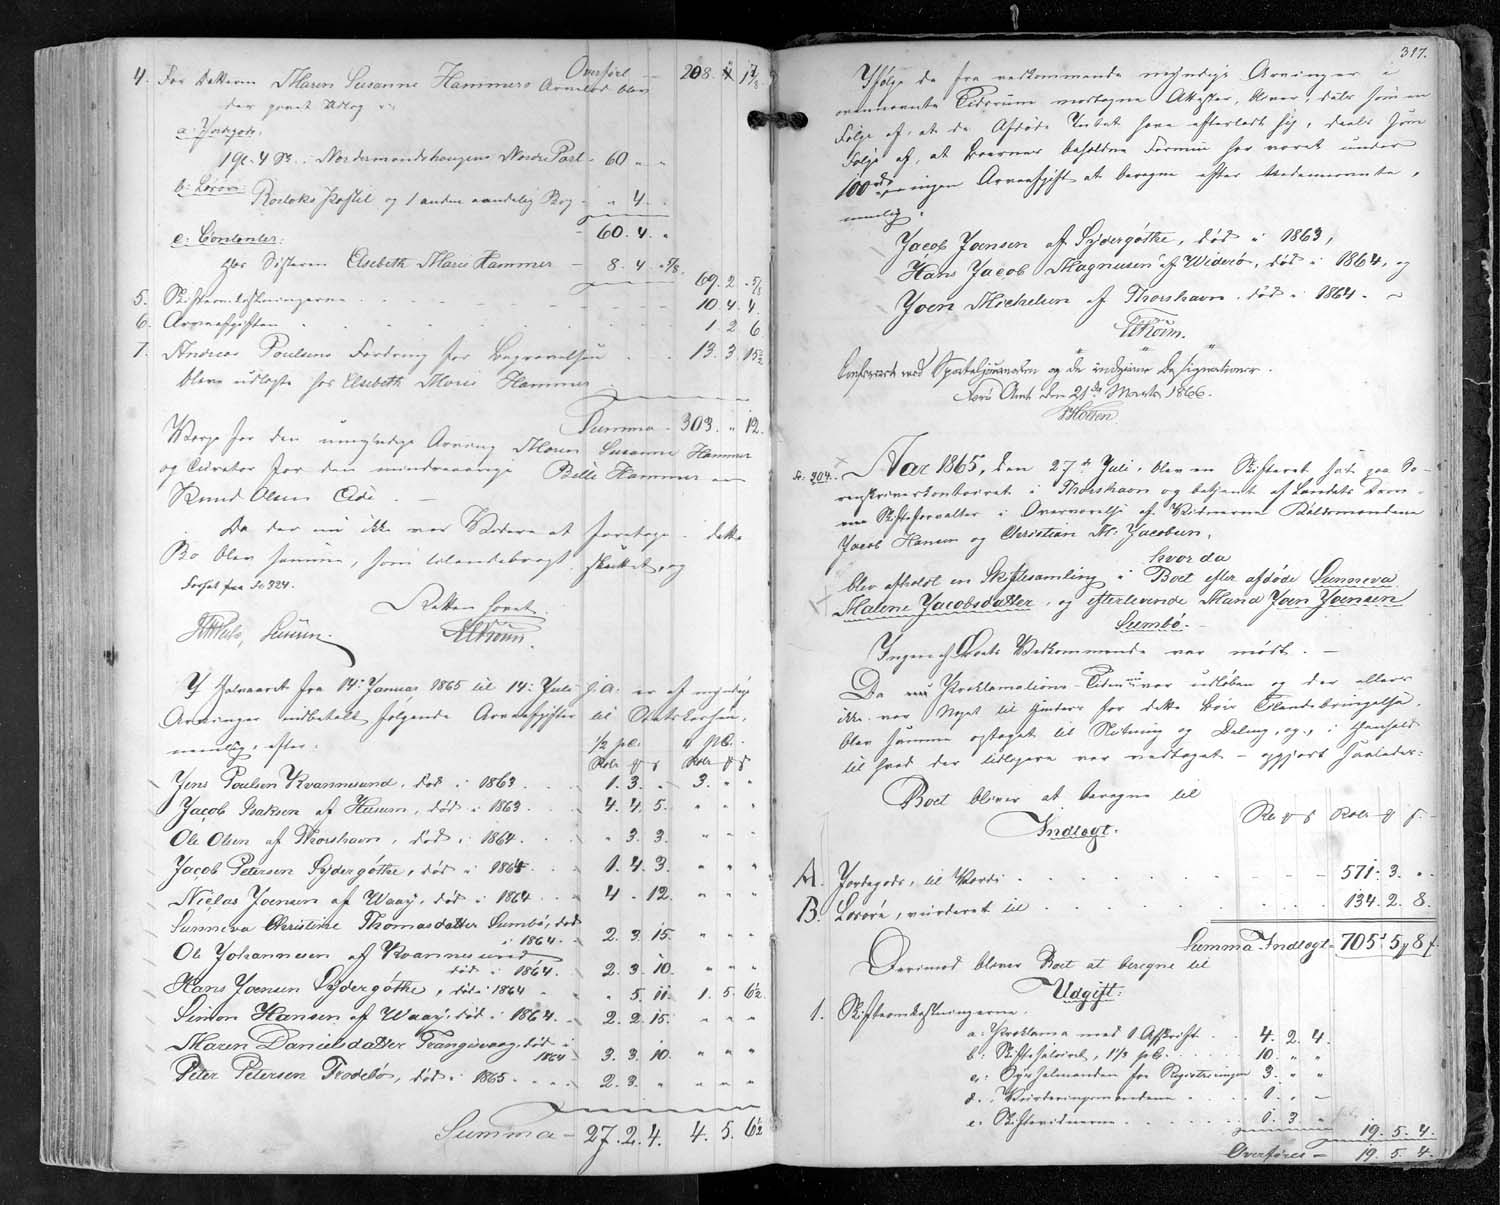 Overført — 208. " 1 7/8
4. For Datteren Maren Susanne Hammers Arvelod blev
der gjort Udlog i:
a: Jordegods.
19l. 4 Sk. i Nordermandshaugens Nordre Part - 60 " "
b: Løsøre:
Roeloks Postil og 1 anden aandelig Bog - " 4. "
60. 4. "
c: Contenter:
hos Søsteren Elsebeth Marie Hammer — 8. 4. " 5/8.
69. 2. " 5/8
5. Skifteomkostningerne 10. 4. 4.
6. Arveafgiften 1 2 6
7. Andreas Poulsens Fordring for Begravelsen 13. 3. 15 1/2
bleve udlagte hos Elsebeth Marie Hammer
Summa - 303. " 12.
Værge for den umyndige Arving Maren Susanne Hammer
og Curator for den mindreaarige Bille Hammer er
Knud Olsen Eide. —
Da der nu ikke var Videre at foretage i dette
Bo blev samme, som tilendebragt, sluttet, og
Forsat fra Fo 324.
Retten hævet.
I Halvaaret fra 14de Januar 1865 til 14de Juli s. A. er af myndige
Arvinger indbetalt følgende Arveafgifter til Amtskassen,
nemlig, efter:
1/2 pC. 4 pC.
Rdlr # s Rdlr # s
Jens Poulsen Kvannesund, død i 1863 1. 3. " 3. " "
Jacob Isaksen af Husum, død i 1863 4. 4. 5. " " "
Ole Olsen af Thorshavn, død i 1864 " 3. 3. " " "
Jacob Petersen Sydergøthe, død i 1864 1. 4. 3. " " "
Niclas Joensen af Waay, død i 1864 4 - 12. " " "
Sunneva Christine Thomasdatter Sumbø, død
i 1864. - 2. 3. 15. " " "
Ole Johannesen af Kvannesund
død i 1864. 2. 3. 10. " " "
Hans Joensen Sydergøthe, død i 1864 " 5. 11. 1. 5. 6 1/2.
Simon Hansen af Waay, død i 1864. 2. 2. 15. " " "
Maren Danielsdatter Trangisvaag, død i
1864 3. 3. 10. " " "
Peter Petersen Frodebø, død i 1865 2. 3. " " " "
Summa — 27. 2. 4. 4. 5. 6 1/2
317.
Ifølge de fra vedkommende myndige Arvinger i
ovennævnte Tidsrum modtagne Attester, bliver, deels som en
Følge af, at de Afdøde Intet have efterladt sig, deels som
Følge af, at Boernes beholdne Formue har været under
100 rd, ingen Arveafgift at beregne efter Nedennævnte,
nemlig:
Jacob Joensen af Sydergøthe, død i 1863,
Hans Jacob Magnusen af Widerø, død i 1864, og
Joen Michelsen af Thorshavn, død i 1864. —
Confereret med Sporteljournalen og de indgivne Designationer.
Færø Amt den 21de Marts 1866.
No. 204. Aar 1865, den 27de Juli, blev en Skifteret sat paa So-
renskriverkontoiret i Thorshavn og betjent af Landets Dom-
mer Skifteforvalter i Overværelse af Vidnerne
Jacob Hansen og Christian M. Jacobsen,
hvor da
blev afholdt en Skiftesamling i Boet efter afdøde Sunneva
Malene Jacobsdatter, og efterlevende Mand Joen Joensen
Sumbø. -
Ingen af Boets Vedkommende var mødt. —
Da nu Proklamations-Tiden var udløben og der ellers
ikke var Noget til Hinder for dette Boes Tilendebringelse,
blev samme optaget til Slutning og Deling, og, i Henhold
til hvad der tidligere var vedtaget — opgjort saaledes:
Boet bliver at beregne til
Indtægt.
Rd # s Rdlr # s.
A. Jordegods, til Værdi 571. 3. "
B. Løsøre, vurderet til 134. 2. 8.
Summa Indtægt — 705 5 # 8 s.
Derimod bliver Boet at beregne til
Udgift:
1. Skifteomkostningerne.
a: Proklama med 1 Afskrift 4. 2. 4.
b: Skiftesalair, 1 1/3 pC. 10. " "
c: Sysselmanden for Registreringen 3. " "
d: Vurderingsmændene 1. " -
e: Skiftevidnerne 1. 3. "
19. 5. 4.
Overføres — 19. 5. 4.